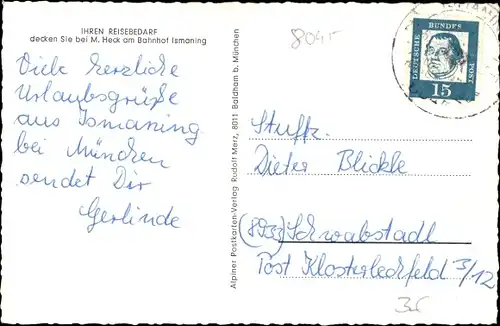 IHREN REISEBEDARF
decken Sie bei M. Heck am Bahnhof Ismaning
8045
Viele herzliche
Urlaubsgrüße
aus Ismaning
bei München
sendet Dir
Gerlinde
Alpiner Postkarten-Verlag Rudolf Merz, 8011 Baldham b. München
DEUTSCHE
BUNDES
POST
15
Stuffz.
Dieter Blickle
(8933) Schwabstadl
Post Klosterlechfeld 3/12